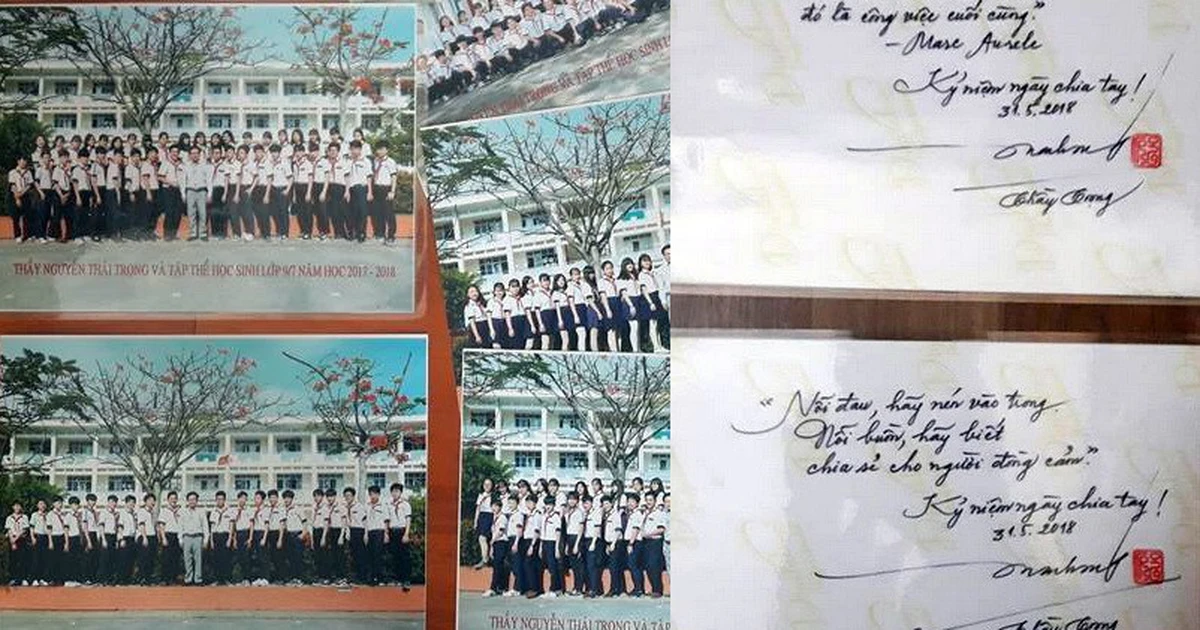 THẦY NGUYỄN THÁI TRỌNG VÀ TẬP THỂ HỌC SINH LỚP 9/7 NĂM HỌC 2017 - 2018
THÁI TRỌNG VÀ TẬP THỂ HỌC SINH
THẦY NGUYỄN THÁI TRỌNG VÀ TẬP
đó là công việc cuối cùng."
- Marc Aurele
Kỷ niệm ngày chia tay!
31.5.2018
Thầy Trọng
"Nỗi đau, hãy nén vào trong.
Nỗi buồn, hãy biết
chia sẻ cho người đồng cảm."
Kỷ niệm ngày chia tay!
31.5.2018
Thầy Trọng